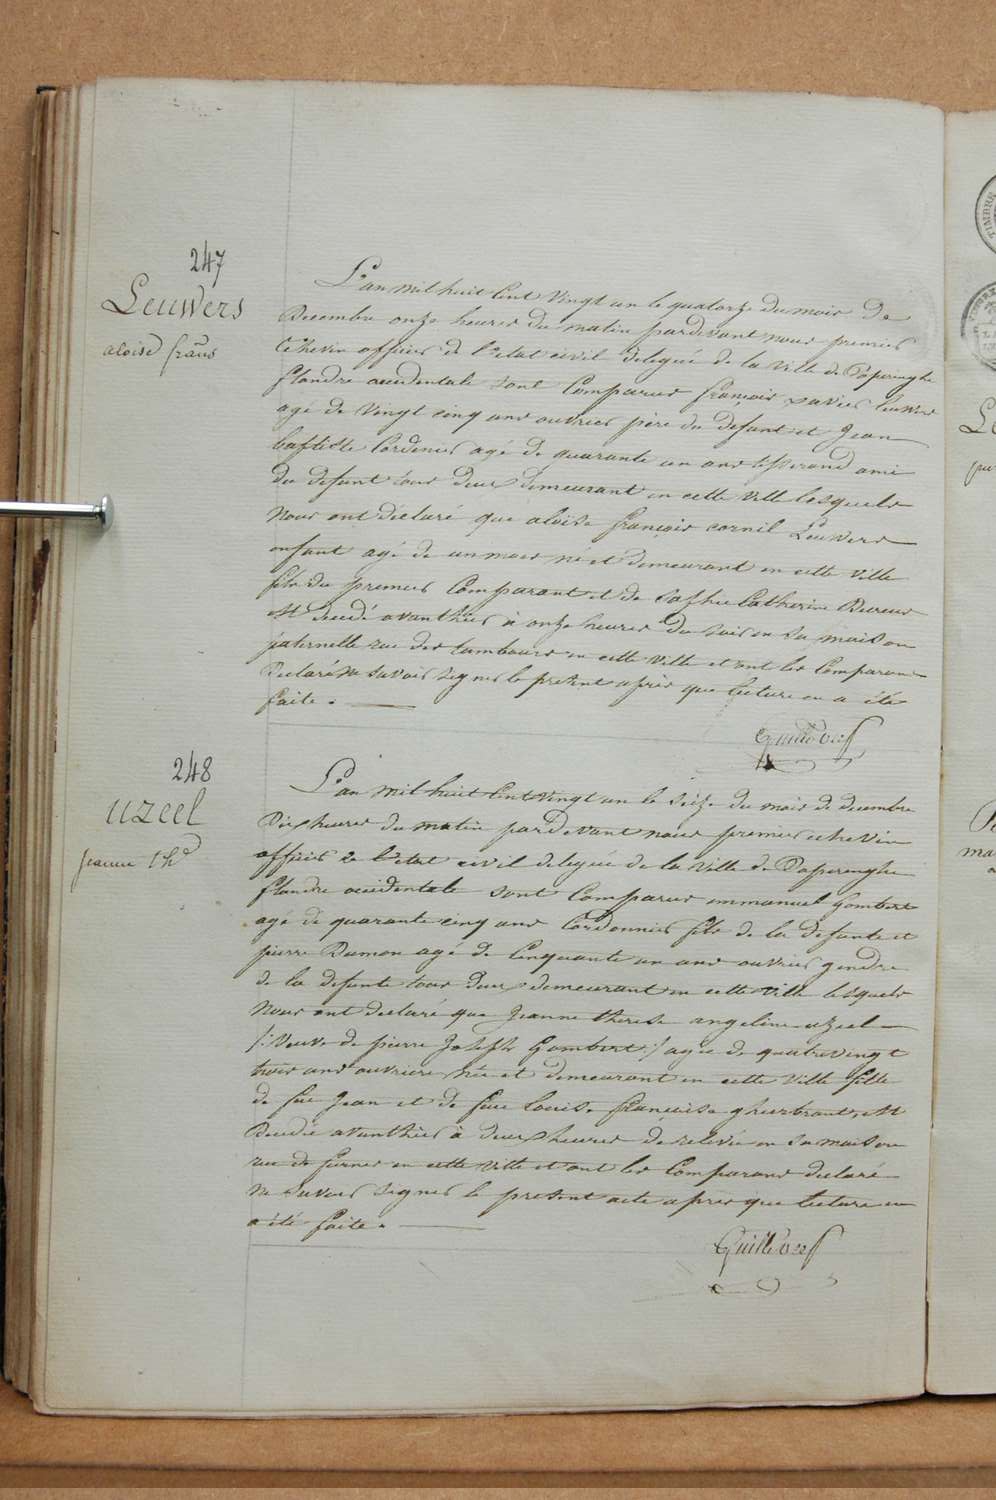 247
Leuwers
aloise frans
L'an mil huit Cent Vingt un le quatorze du mois de
Decembre onze heures du matin pardevant nous premier
Echevin officier de l'etat civil delegué de la Ville de Poperinghe
flandre occidentale sont Comparus françois xavier leuwers
agé de Vingt cinq ans ouvrier père du defunt et Jean
baptiste Cordenier agé de quarante un ans tisserand ami
du defunt tous deux demeurant en cette Ville lesquels
Nous ont declaré que aloïse françois cornil Leuwers
enfant agé de un mois né et demeurant en cette Ville
fils du premier Comparant et de Sophie Catherine
est decedé avanthier à onze heures du soir en sa maison
paternelle rue des tambours en cette Ville et ont les Comparans
declaré ne savoir signer le present après que lecture en a été
faite.
248
uzeel
jeanne thr
L'an mil huit Cent Vingt un le seize du mois de decembre
Dix heures du matin pardevant nous premier echevin
officier de l'etat civil delegué de la Ville de Poperinghe
flandre occidentale sont Comparus emmanuel Gombert
agé de quarante cinq ans Cordonnier fils de la defunte et
pierre Dumon agé de Cinquante un ans ouvrier gendre
de la defunte tous deux demeurant en cette Ville lesquels
Nous ont declaré que Jeanne therese angeline uzeel
/: Veuve de pierre Joseph Gombert :/ agée de quatrevingt
trois ans ouvriere née et demeurant en cette Ville fille
de feu Jean et de feue louise françoise gheerbrant, est
Decedée avanthier à deux heures de relevée en sa maison
rue de furnes en cette Ville et ont les Comparans declaré
ne savoir signer le present acte après que lecture en
a été faite.